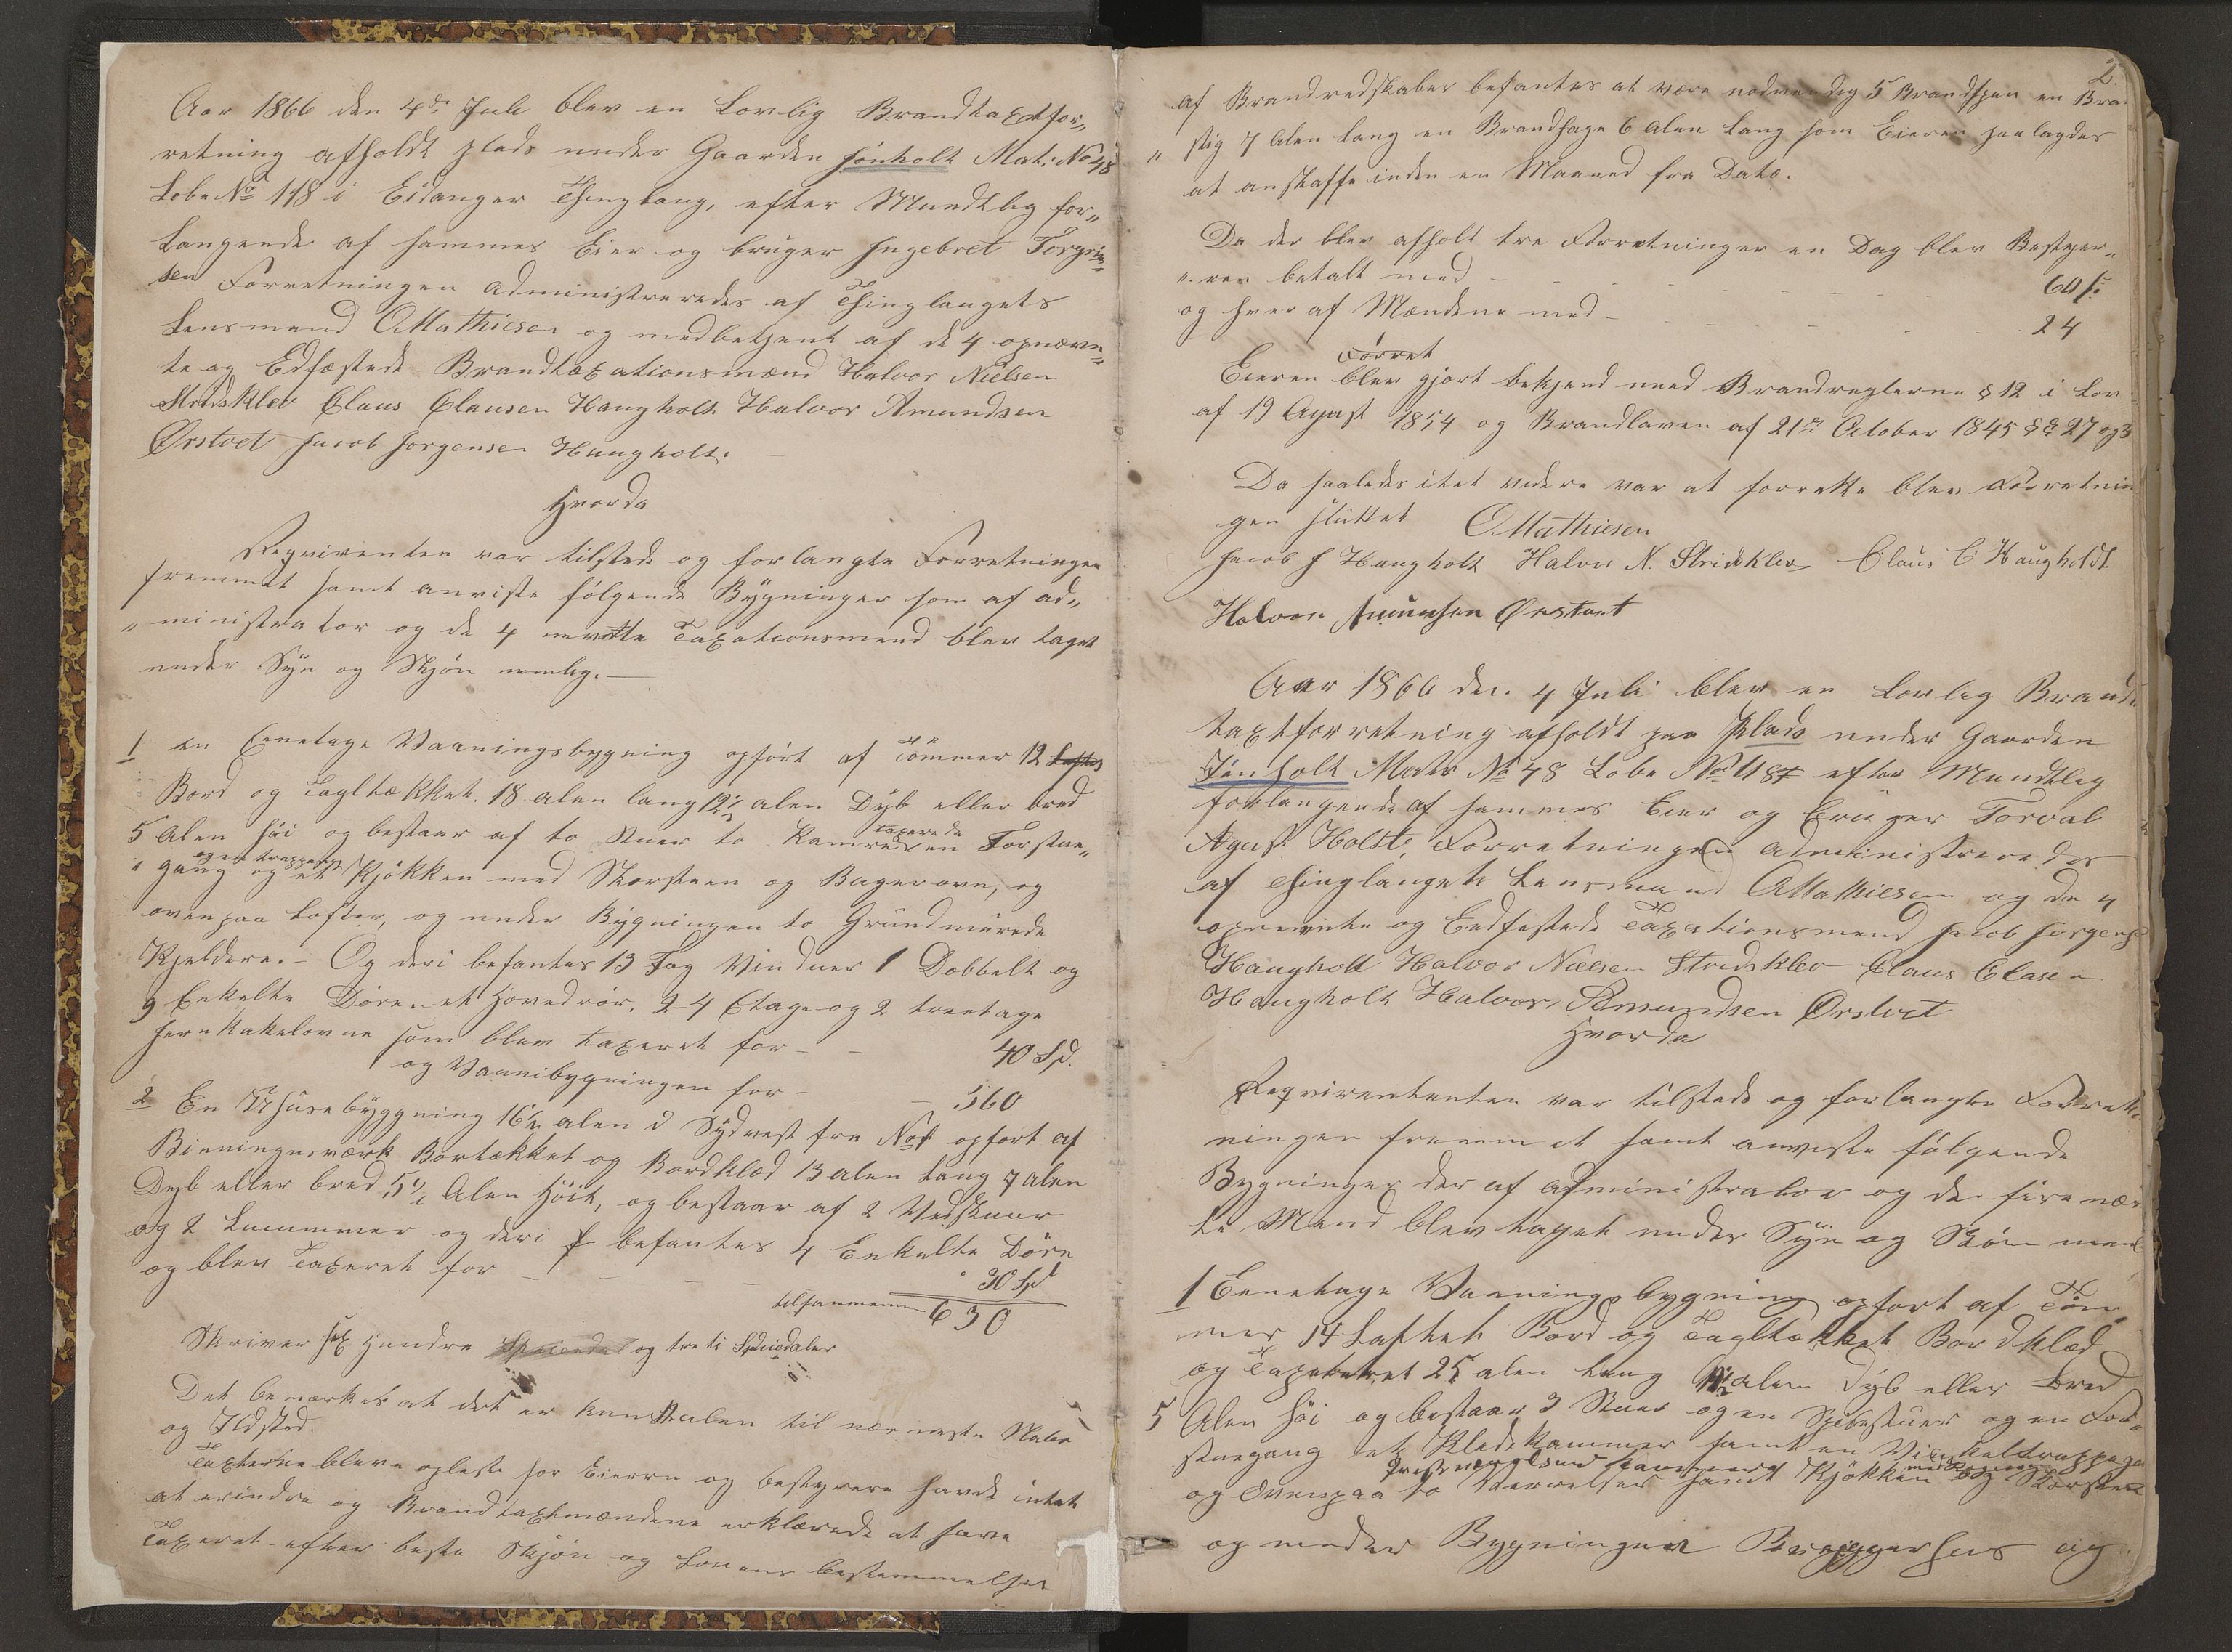 Aar 1866 den 4de Juli blev en Lovlig Brandtaxtfor„
retning afholdt plads under Gaarden Jönholt Mat: No 48
Lobe No 148 i Eidanger Thinglaug, efter Mundtlig for„
langende af sammes Eier og bruger Ingebret Torgrim„
sen Forretningen administreredes af Thinglaugets
Lensmand OMathiesen og medbetjent af de 4 opnævn„
te og Edfæstede Brandtaxationsmænd Halvor Nielsen
Stridsklev Claus Clausen Haugholt Halvor Amundsen
Ørstvet Jacob Jorgensen Haugholt.
Hvorda
Reqvirenten var tilstede og forlangte Forretningen
fremmet samt anviste følgende Bygninger som af ad„
„ministrator og de 4 nevnte Taxationsmend blev taget
under Syn og Skjön nemlig.—
1 en Eenetage Vaaningsbygning opfört af Tömmer 12 Laftes
Bord og Tagltækket. 18 alen lang 12½ alen Dyb eller bred
5 Alen höi og bestaar af to Stuer to Kamre taxerede en Forstue„
„gang og en trappegang og et Kjökken med Skorsteen og Bagerovn, og
ovenpaa Lofter, og under Bygningen to Grundmurede
Kjeldere.- Og deri befantes 13 Fag Vinduer 1 Dobbelt og
9 Enkelte Döre. et Hovedrör. 2-4 Etage og 2 treetage
Jernkakelovne som blev taxeret for - - 40 Spd.
og Vaanibygningen for - - - 560
2 En Uhusebyggning 16½ alen i Sydvest fra No 1 opfort af
Binningsværk Bortækket og Bordklæd 13 alen lang 7 alen
Dyb eller bred 5½ Alen Höit, og bestaar af 2 Vedskuur
og 2 Luummer og deri f befantes 4 Enkelte Döre
og blev Taxeret for - - - - 30 Spd
tilsammen 630
Skriver sex Hundre Speciedal og treti Spdciedaler
Det bemærkes at det er kun alen til nærmeste Nabo
og Ildsted.
Taxterne bleve opleste for Eieren og bestyrere havde intet
at erindre og Brandtaxtmændene erklærede at have
Taxeret efter beste Skjön og Lovens bestemmelser
2.
af Brandredskaber befantes at være nodvendig 5 Brandspan en Bra
„stig 7 Alen lang en Brandhage 6 Alen lang som Eieren paalagdes
at anskaffe inden en Maaned fra Dato.
Da der blev afholt tre Forretninger en Dag blev Bestyer„
„ren betalt med - - - - - 60 s:
og hver af Mændene med - - - - - 24
Forret
Eieren blev gjort bekjend med Brandreglerne § 12 i Lov
af 19 Agust 1854 og Brandlaven af 21de October 1845 §§ 27 og 3
Da saaledes itet videre var at forrette blev Forretnin
gen sluttet OMathiesen
Jacob J Haugholt Halvor N. Stridsklev Claus C Haugholdt
Halvor Amunsen Ørstvet
Aar 1866 den 4 Juli blev en Lovlig Brand„
taxtforretning afholdt paa Plads under Gaarden
Jönholt Matr No 48 Lobe No 118 efter Mundtlig
forlangende af sammes Eier og Bruger Torval
Agust Holste, Forretningen administreredes
af Thinglaugets Lensmand OMathiesen og de 4
opnevnte og Eedfestede Taxationsmend Jacob Jorgens
Haugholt Halvor Nielsen Stridsklev Claus Clasen
Haugholt Halvor, Amundsen Ørstvet
Hvorda
Reqvirententen var tilstede og forlangte Forret
ningen fremmet samt anviste fölgende
Bygninger der af administrator og de fire næv
te Mend blev taget under Syn og Skön nem
1 Eenetage Vaanings bygning opfort af Töm„
mer 14 Laftet Bord og Tagltækket Bordklæd
og Tapetseret 25 alen lang alen Dyb eller bred
5 Alen höi og bestaar 3 Stuer og en Spisestuer og en For„
stuegang et Kledskammer samt en Vinkeltrappega
og Ovenpaa to Værrelser samt Kjökken med Bagerovn og Skorsteen
og under Bygningen Bryggerhus og